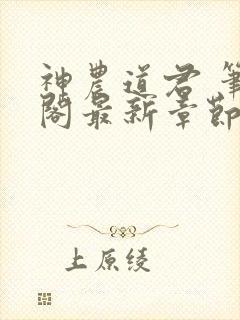 神農道君 筆
閣最新章節
上原綾